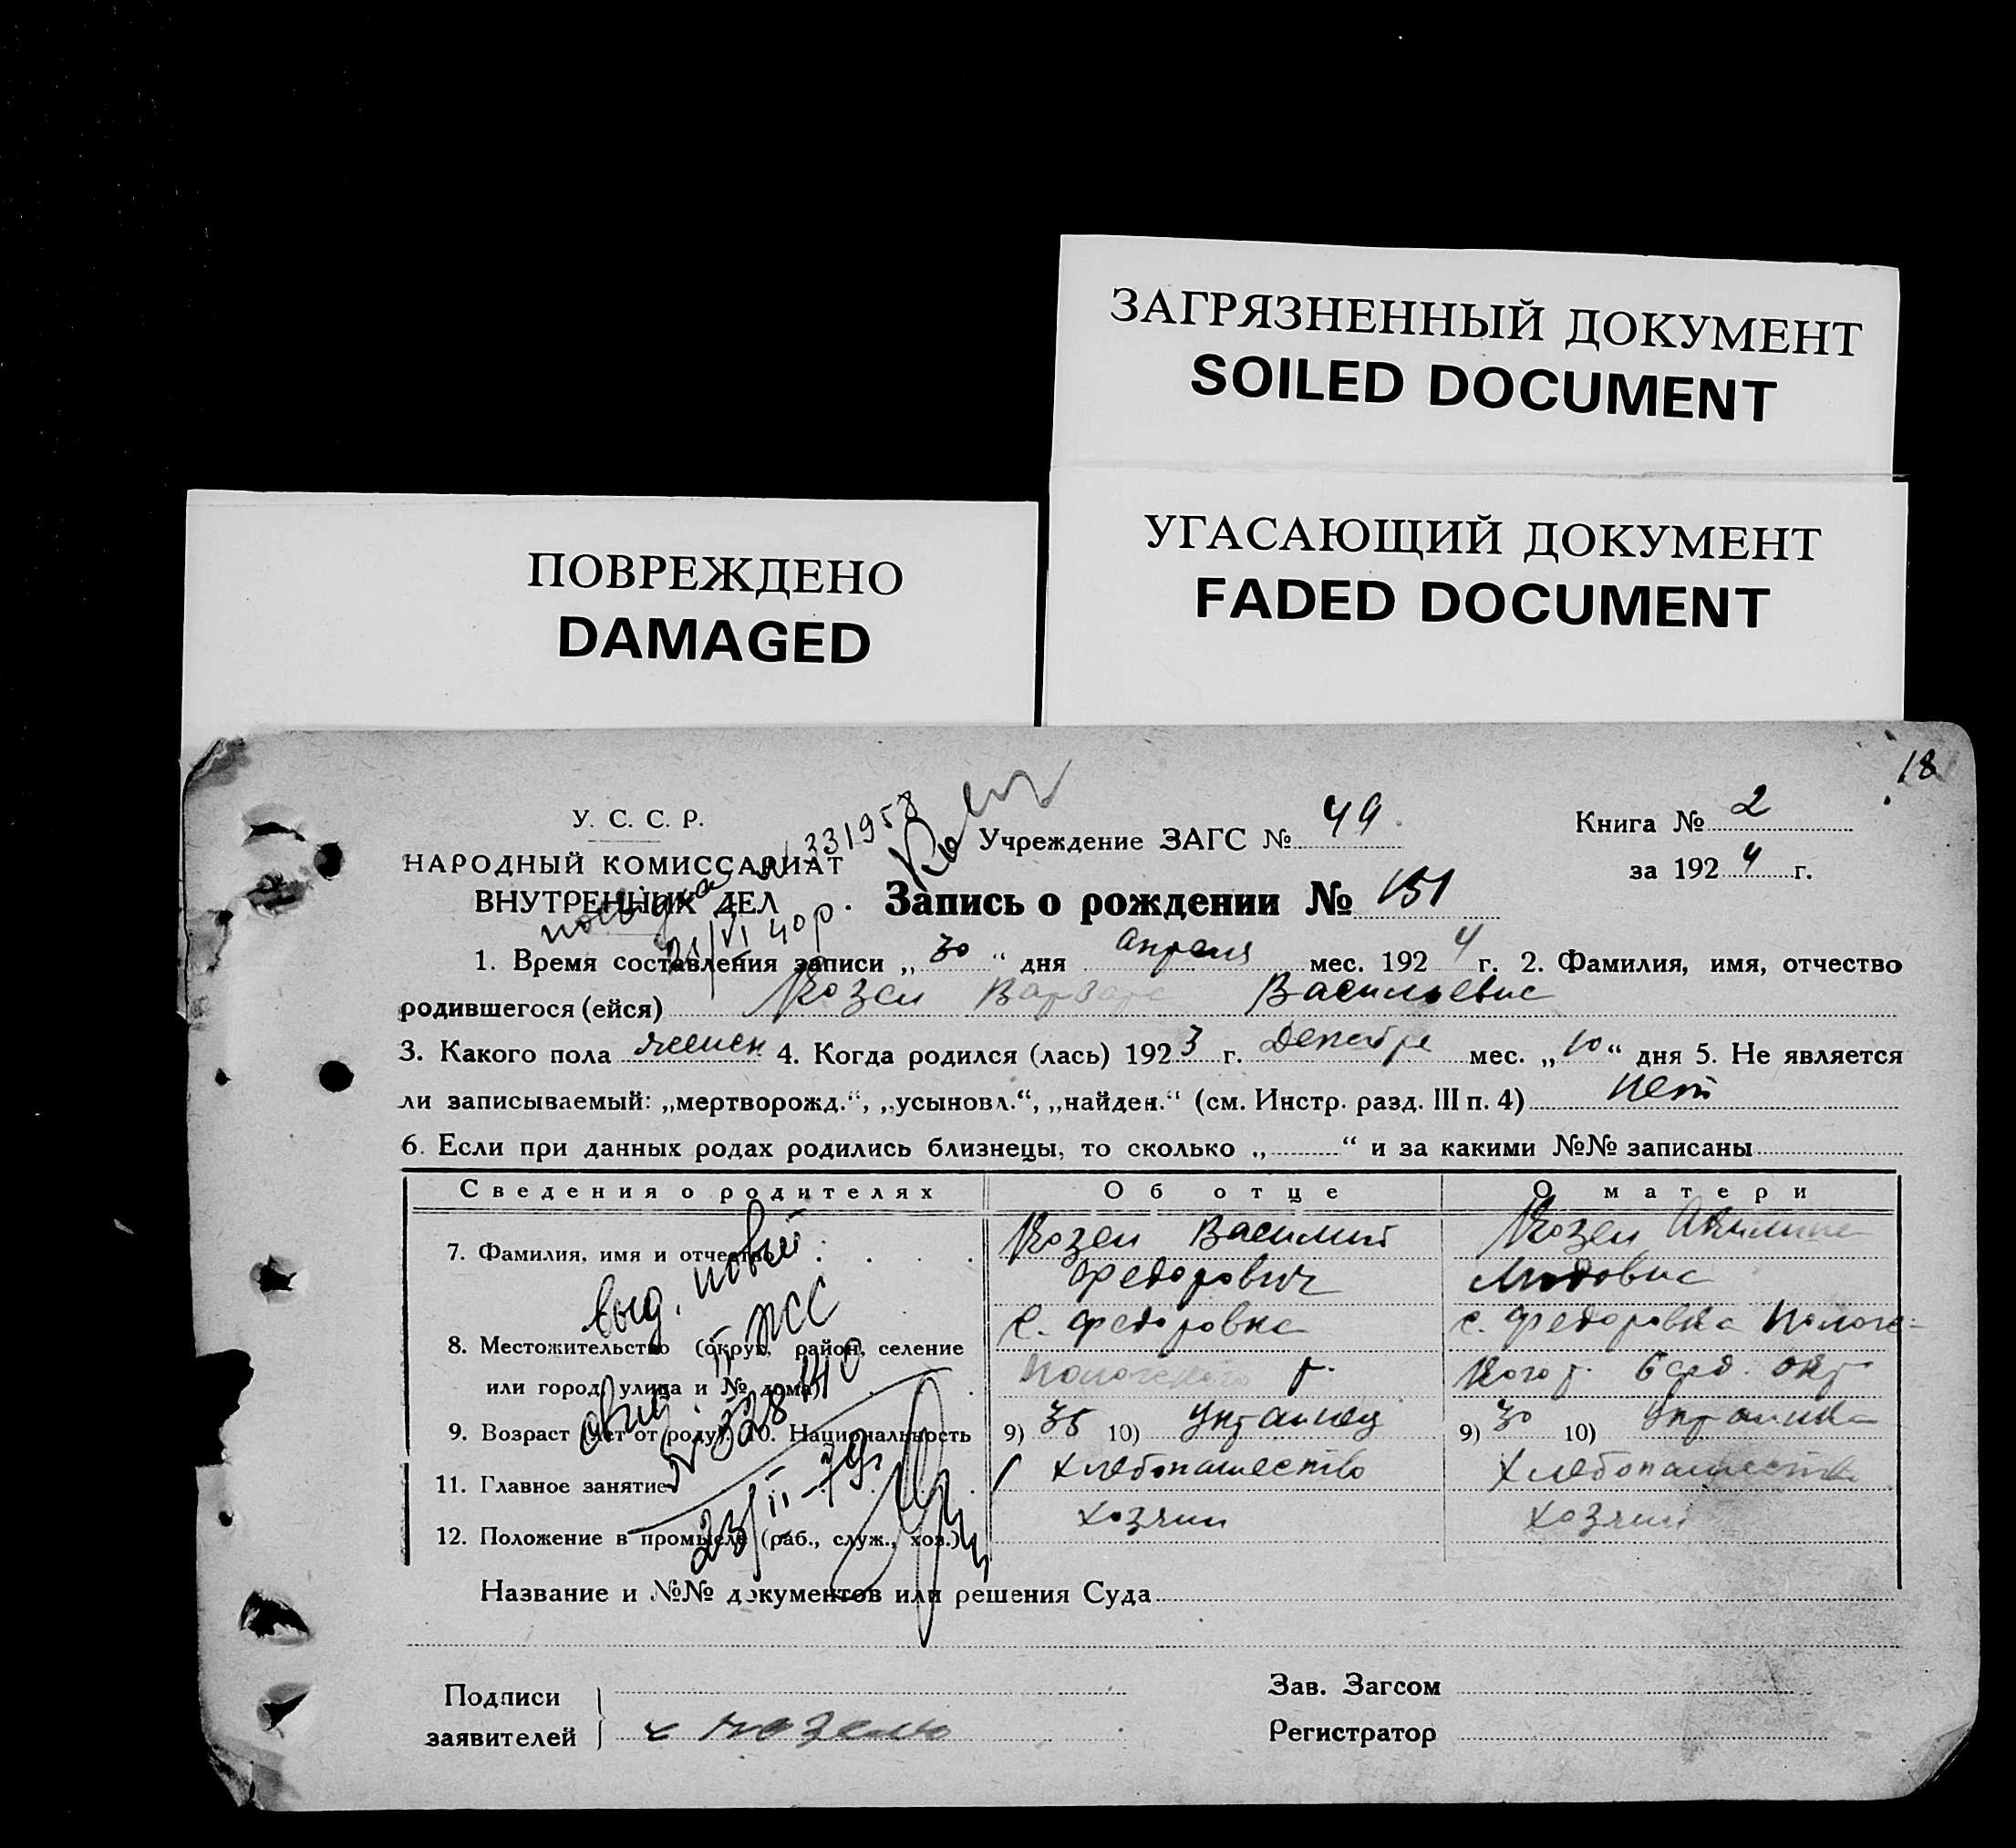 ЗАГРЯЗНЕННЫЙ ДОКУМЕНТ
SOILED DOCUMENT
УГАСАЮЩИЙ ДОКУМЕНТ
FADED DOCUMENT
ПОВРЕЖДЕНО
DAMAGED
18
У. С. С. Р.
НАРОДНЫЙ КОМИССАРИАТ
ВНУТРЕННИХ ДЕЛ
331958
21/VI 40р.
Учреждение ЗАГС № 49
Книга № 2
за 1924 г.
Запись о рождении № 151
1. Время составления записи „30“ дня апреля мес. 1924 г. 2. Фамилия, имя, отчество
родившегося (ейся) Козел Варвара Васильевна
3. Какого пола женск 4. Когда родился (лась) 1923 г. Декабре мес. „10“ дня 5. Не является
ли записываемый: „мертворожд.“, „усыновл.“, „найден.“ (см. Инстр. разд. III п. 4) нет
6. Если при данных родах родились близнецы, то сколько „ “ и за какими №№ записаны
Сведения о родителях Об отце О матери
7. Фамилия, имя и отчество Козел Василий Козел Акилина
Федорович
8. Местожительство (округ, район, селение с. Федоровка с. Федоровка Полог-
или город, улица и № дома) Пологского р. кого р. Берд. окр
9. Возраст (лет от роду) 10. Национальность 9) 35 10) Украинец 9) 30 10) Украинка
11. Главное занятие хлебопашество хлебопашество
12. Положение в промысле (раб., служ., хоз.) хозяин хозяин
выд. новый
23/II-79г
Название и №№ документов или решения Суда
Подписи
заявителей
Зав. Загсом
Регистратор